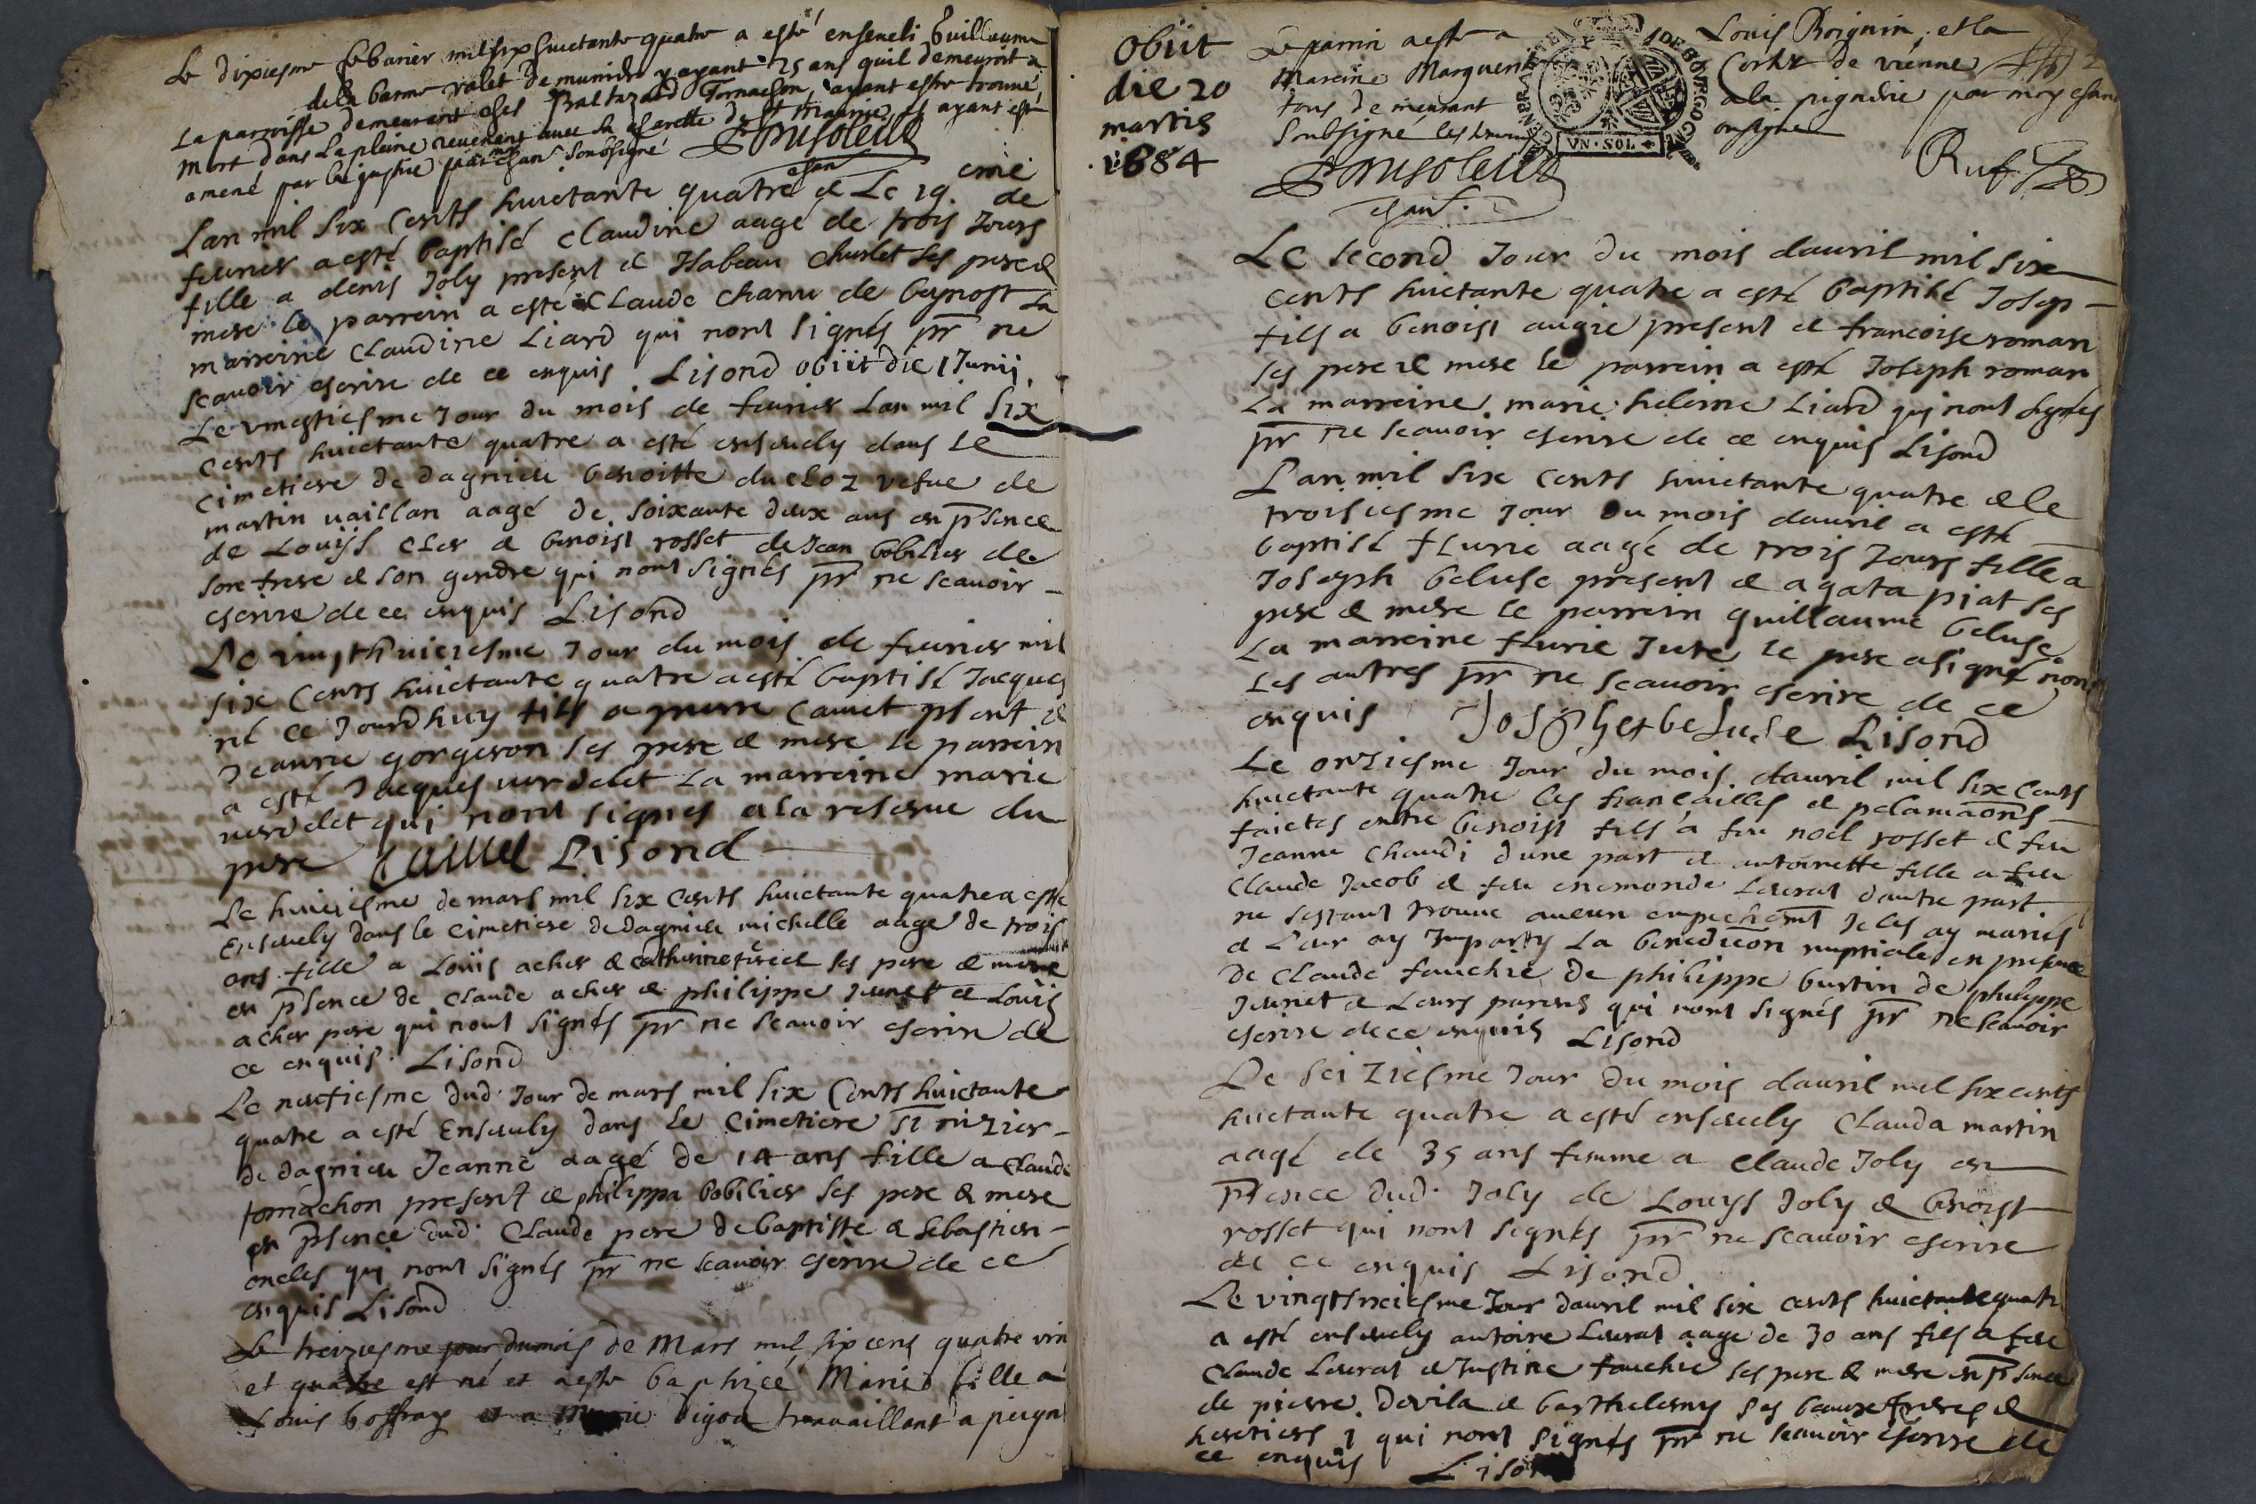 Le dixiesme febvrier mil six huictante quatre a esté enseveli Guillaume
de la barme valet de munide y ayant 25 ans quil demeuroit a
La parroisse demeurant ches Baltazard Tornachon, ayant estre trouué
Mort dans La pleine reuenent auec sa charette de st maurice et ayant esté
amené par la justice par moy chan. Soubsigné Bonisoleil
chan
Lan mil six cents huictante quatre & Le 19.eme de
feurier a esté baptisé claudine aagé de trois Jours
fille a denis Joly present & Isabeau churlet ses pere &
mere le parrein a esté Claude charu de beynost La
marreine Claudine Liard qui nont signés pr ne
scauoir escrire de ce enquis. Lisond obiit die 1 Junii.
Le vingtiesme Jour du mois de feurier Lan mil six
cents huictante quatre a esté enseuely dans Le
cimetiere de dagnieu benoitte du cloz vefue de
martin vaillan aagé de soixante deux ans en psence
de Louys cler & benoist rosset de Jean bobilier de
son frere & son gendre qui nont signés pr ne scauoir
escrire de ce enquis Lisond
Le vingthuictesme Jour du mois de feurier mil
six cents huictante quatre a esté baptisé Jacques
né ce Jourdhuy fils a pierre cauuet psent &
Jeanne gorgeron ses pere & mere le parrein
a esté Jacques verdelet La marreine marie
verdelet qui nont signes a la reserue du
pere Cauuel Lisond
Le huictiesme de mars mil six cents huictante quatre a esté
Enseuely dans le cimetiere de dagnieu michelle aage de trois
ans fille a Louis acher & catherine ses pere & mere
en psence de Claude acher & philippe Junet & Louis
acher pere qui nont signés pr ne scauoir escrire de
ce enquis. Lisond
Le neufiesme dud. Jour de mars mil six cents huictante
quatre a esté Enseuely dans le cimetiere st nizier
de dagnieu Jeanne aagé de 14 ans fille a Claude
tornachon present & philippa bobilier ses pere & mere
en psence dud. Claude pere de baptiste & sebastien
oncles qui nont signés pr ne scauoir escrire de ce
enquis Lisond
Le treiziesme jour du mois de Mars mil six cens quatre vin
et quatre est né et a esté baptizée Marie fille a
Louis boffray et a Marie bigot travaillant a peign
obiit
die 20
martis
1684
Le parrin a esté
Louis Boignin, et la
Mareine Marguerite
Cortey de viénne
tous demeurant
a la pignerie par moy chan
Soubsigné
Bonisoleil
chan.
Ruf
GENER
DE BOURGOGNE
VN·SOL
Le second Jour du mois dauril mil six
cents huictante quatre a esté baptisé Josep
fils a benoist augie present & francoise roman
ses pere & mere le parrein a esté Joseph roman
La marreine marie heleine Liard qui nont signés
pr ne scauoir escrire de ce enquis Lisond
Lan mil six cents huictante quatre & le
troisiesme Jour du mois dauril a esté
baptisé flurie aagé de trois Jours fille a
Joseph beluse present & agata piat ses
pere & mere le parrein guillaume beluse
La marreine flurie Jute le pere a signé non
Les autres pr ne scauoir escrire de ce
enquis Joseph beluse Lisond
Le onziesme Jour du mois dauril mil six cents
huictante quatre les fiancailles & pclamaons
faictes entre benoist fils a feu noel rosset & feu
Jeanne chaudi dune part & antoinette fille a feu
Claude Jacob & feu enemonde Leurat dautre part
ne sestant trouue aucun empechemt Je les ay mariés
& Leur ay Imparty La benediction nuptiale en presence
de Claude fauchie de philippe burtin de philippe
Junet & Leurs parens qui nont signés pr ne scauoir
escrire de ce enquis Lisond
Le seiziesme Jour du mois dauril mil six cents
huictante quatre a esté enseuely Clauda martin
aagé de 35 ans femme a Claude Joly en
psence dud. Joly de Louys Joly & benoist
rosset qui nont signés pr ne scauoir escrire
de ce enquis Lisond
Le vingt Jour dauril mil six cents huictante quatre
a esté enseuely antoine Leurat aage de 30 ans fils a feu
Claude Leurat & Justine fauchie ses pere & mere en psence
de pierre Devila & barthelemy ses beaux freres &
heretiers qui nont signés pr ne scauoir escrire de
ce enquis Lisond